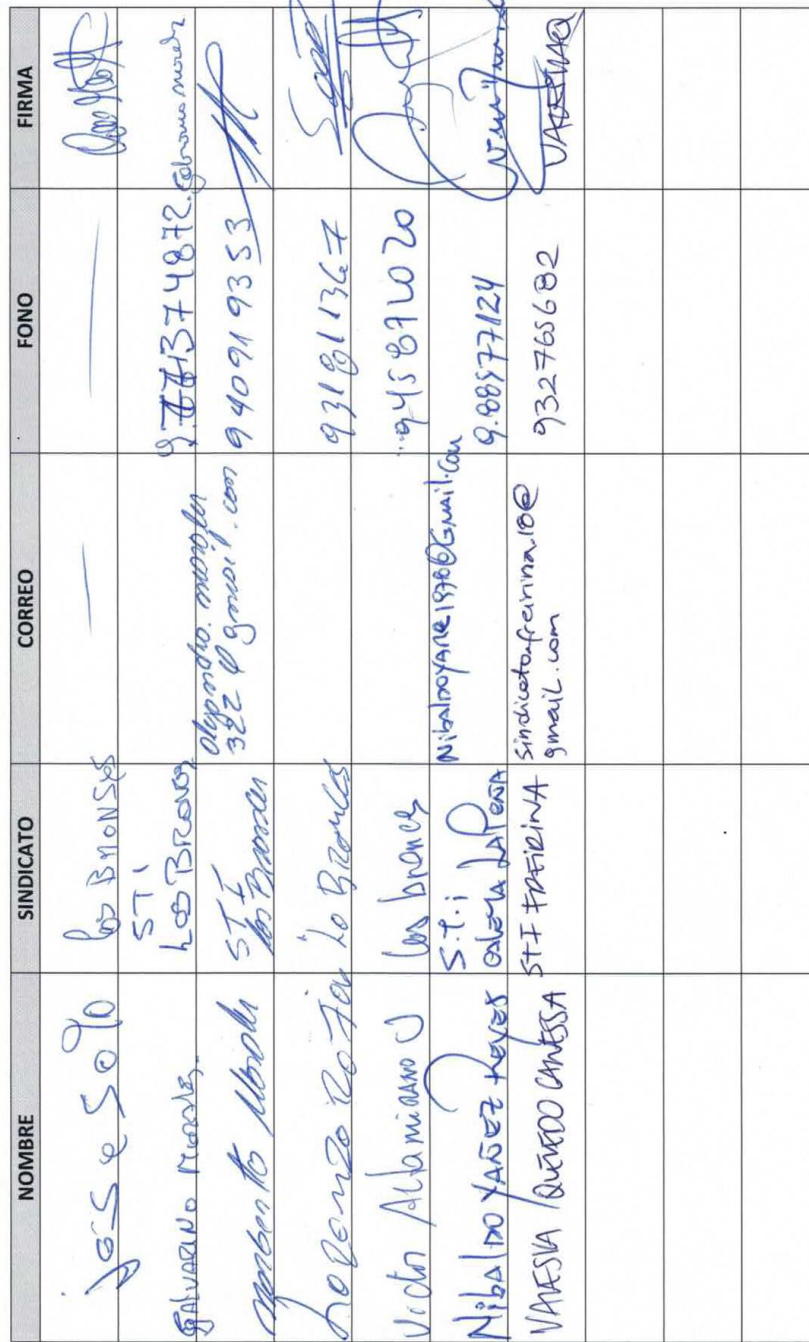 NOMBRE SINDICATO CORREO FONO FIRMA
José Soto Los Bronces — —
Galvarino Morales STI
Los Bronces
Norberto Morales STI
Los Bronces 322@gmail.com 940919353
Lorenzo Rojas Lo Bronces 931811367
Victor Altamirano J Los bronces 945871020
Nibaldo Yañez Reyes S.t.i
Caleta La Peña Nibaldoyane1978@Gmail.Com 9.88577124
VALESKA QUEVEDO CANESSA STI FREIRINA sindicato.freirina.18@
gmail.com 932765682 VALESKAQ